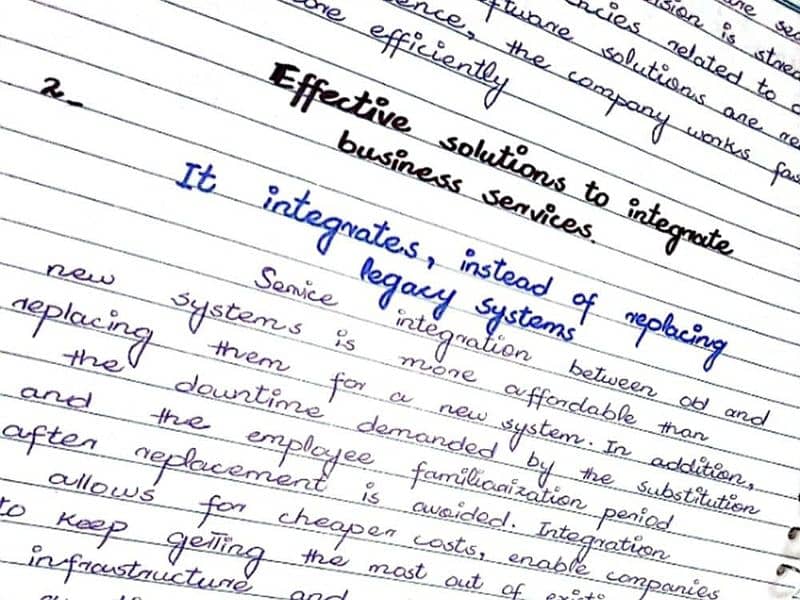 sion is stored
ence, the company works fas
software solutions are re
cies related to
efficiently
2_
Effective solutions to integrate
business services.
It integrates, instead of replacing
legacy systems
Service integration between old and
new systems is more affordable than
replacing them for a new system. In addition,
the downtime demanded by the substitution
and the employee familiarization period
after replacement is avoided. Integration
allows for cheaper costs, enable companies
to keep getting the most out of
infraustructure and